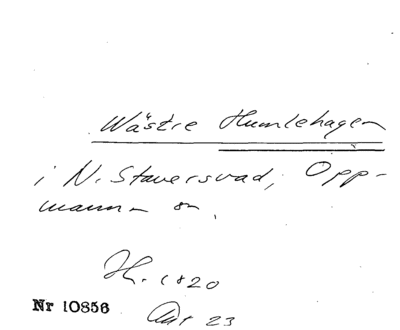 Wästre Humlehagen
i N. Staversvad, Opp-
manna sn.
H. 1820
Akt 23
Nr 10856